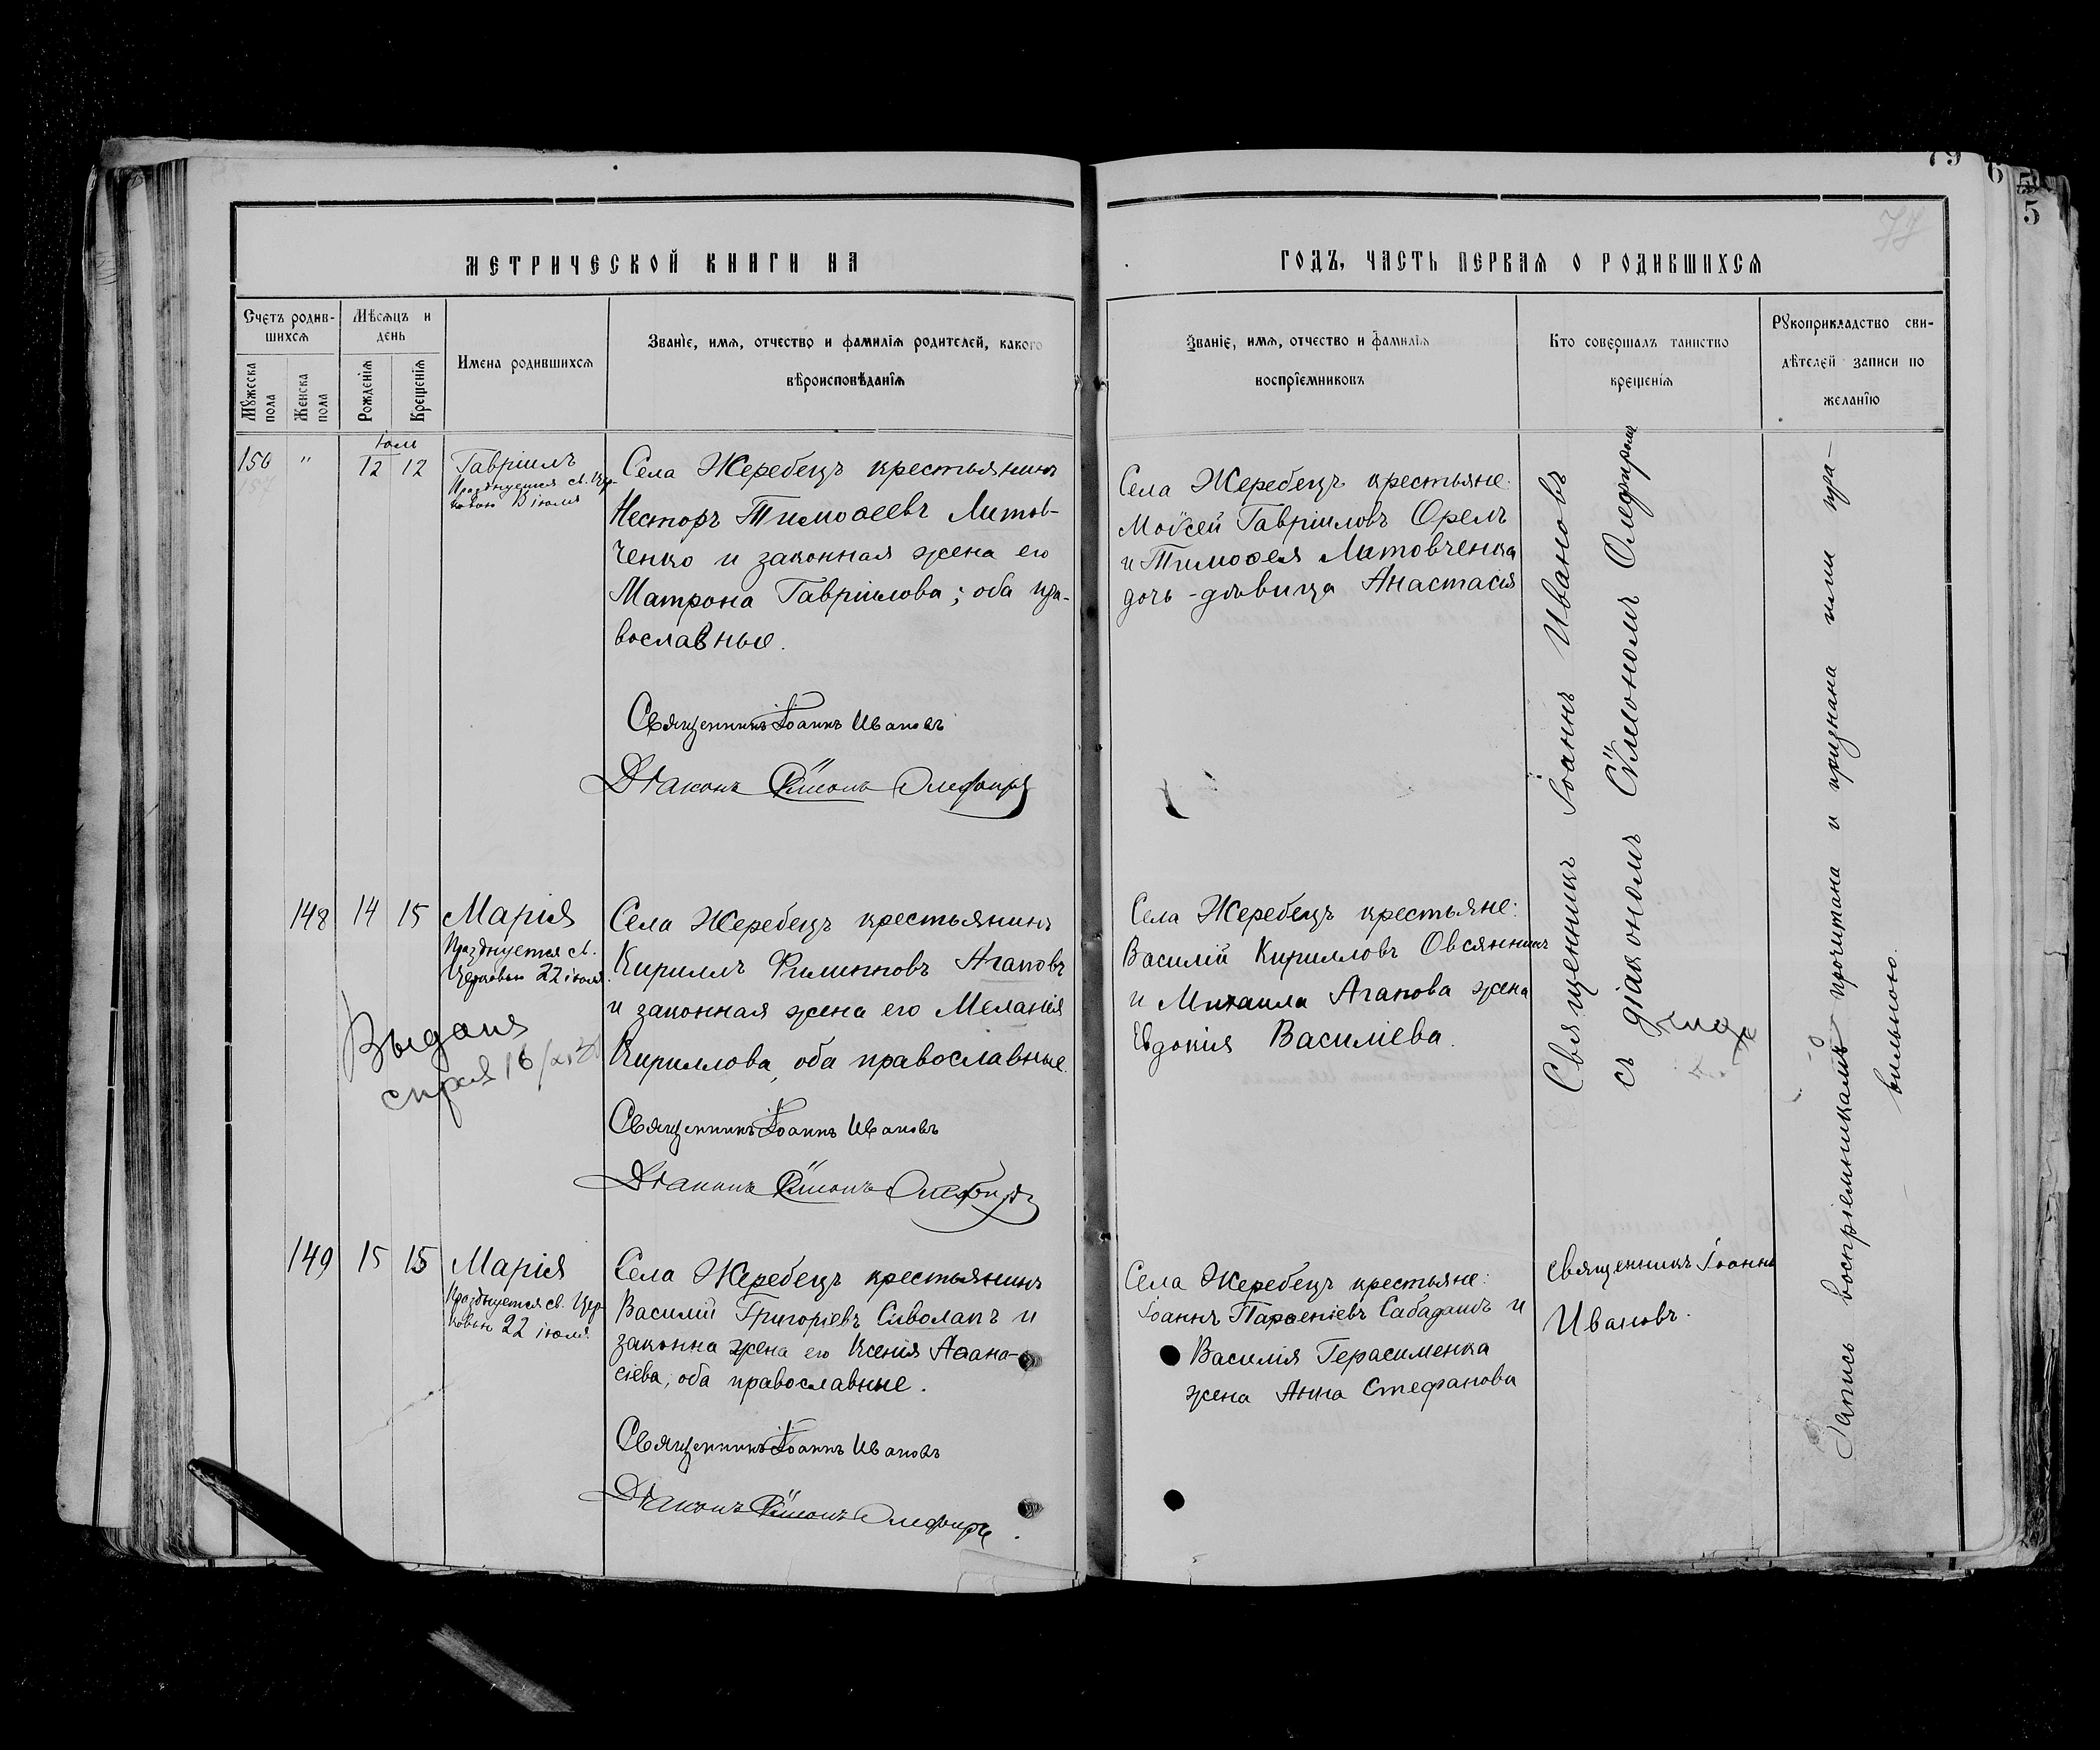 79
6
5
5
77
МЕТРИЧЕСКОЙ КНИГИ НА
Счетъ родив-
шихся
Мѣсяцъ и
день
Мужеска
пола
Женска
пола
Рожденія
Крещенія
Имена родившихся
Званіе, имя, отчество и фамилія родителей, какого
вѣроисповѣданія
Іюль
156 " 12 12
Гавріилъ
Празднуется св. Цер-
ковью 13 іюля
Села Жеребецъ крестьянинъ
Несторъ Тимоѳеевъ Литов-
ченко и законная жена его
Матрона Гавріилова; оба пра-
вославные.
Священникъ Іоаннъ Ивановъ
Діаконъ Сѷмеонъ Олефиръ
148 14 15
Марія
Празднуется св.
Церковью 22 іюля
Выдана
Села Жеребецъ крестьянинъ
Кириллъ Филипповъ Агаповъ
и законная жена его Меланія
Кириллова, оба православные.
Священникъ Іоаннъ Ивановъ
Діаконъ Сѷмеонъ Олефиръ
149 15 15
Марія
Празднуется св. Цер-
ковью 22 іюля
Села Жеребецъ крестьянинъ
Василій Григоріевъ Сиволапъ и
законна жена его Ксенія Аѳана-
сіева; оба православные.
Священникъ Іоаннъ Ивановъ
Діаконъ Сѷмеонъ Олефиръ
ГОДЪ, ЧАСТЬ ПЕРВАЯ О РОДИВШИХСЯ
Званіе, имя, отчество и фамилія
воспріемниковъ
Кто совершалъ таинство
крещенія
Рукоприкладство сви-
дѣтелей записи по
желанію
Села Жеребецъ крестьяне:
Моѷсей Гавріиловъ Орелъ
и Тимоѳея Литовченка
дочь - дѣвица Анастасія
Села Жеребецъ крестьяне:
Василій Кирилловъ Овсянникъ
и Михаила Агапова жена
Евдокія Василіева.
Села Жеребецъ крестьяне:
Іоаннъ Парѳеніевъ Сабадашъ и
Василія Герасименка
жена Анна Стефанова
Священникъ Іоаннъ Ивановъ
съ діакономъ Сѷмеономъ Олефиромъ
священникъ Іоаннъ
Ивановъ.
Запись воспріемникамъ прочитана и признана ими пра-
вильною.